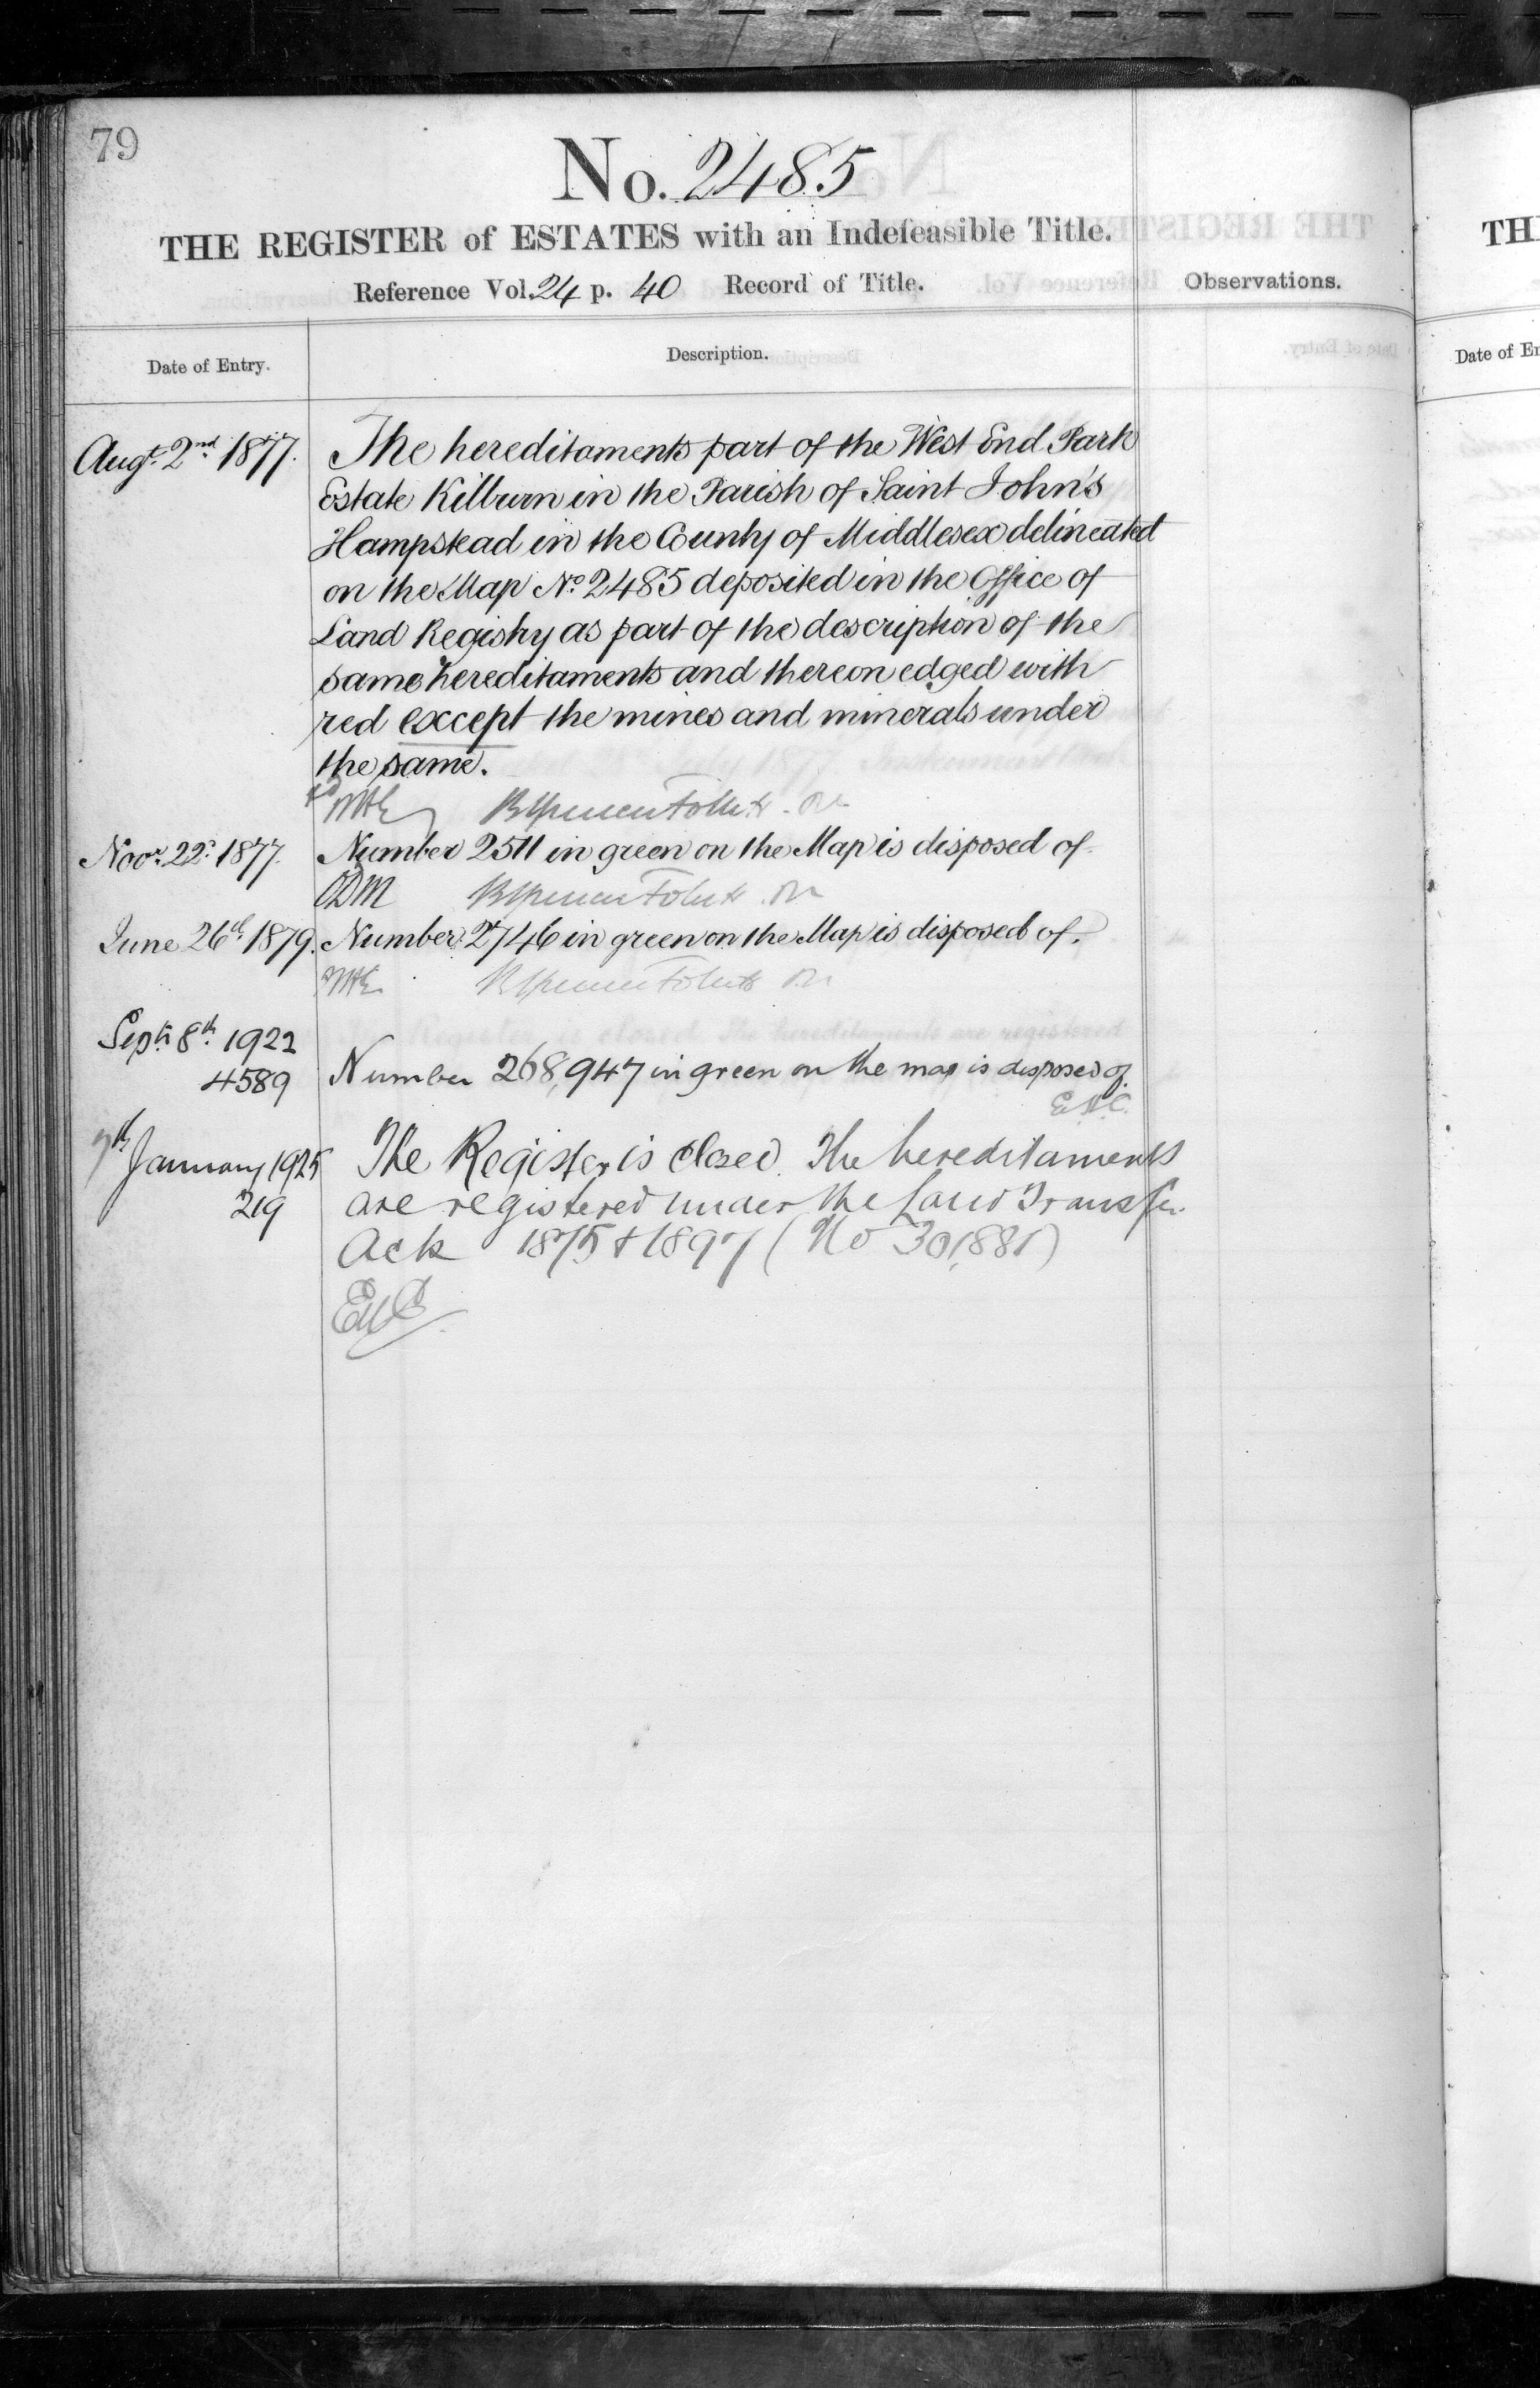 79
No. 2485
THE REGISTER of ESTATES with an Indefeasible Title.
Reference Vol. 24 p. 40 Record of Title.
Observations.
Date of Entry.
Description.
Augt. 2nd 1877.
The hereditaments part of the West End Park
Estate Kilburn in the Parish of Saint John's
Hampstead in the County of Middlesex delineated
on the Map No. 2485 deposited in the Office of
Land Registry as part of the description of the
same hereditaments and thereon edged with
red except the mines and minerals under
the same.
Novr. 22. 1877.
Number 2511 in green on the Map is disposed of.
ODM
June 26th 1879.
Number 2746 in green on the Map is disposed of.
Sept. 8th 1922
4589
Number 268,947 in green on the map is disposed of.
7th January 1925
219
The Register is closed. The hereditaments
are registered under the Land Transfer
Acts 1875 & 1897 (No 301,881)
TH
Date of En